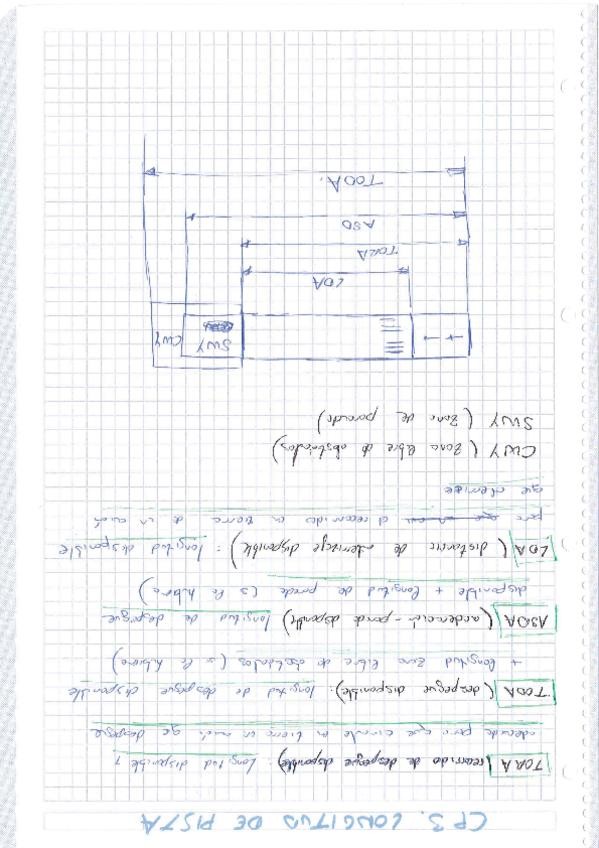 CP3. LONGITUD DE PISTA
TORA (recorrido de despegue disponible): longitud disponible y
adecuada para que circule en tierra un avión que despegue
TODA (despegue disponible): longitud de despegue disponible
+ longitud zona libre de obstáculos (si la hubiera)
ASDA (aceleración-parada disponible) longitud de despegue
disponible + longitud de parada (si la hubiera)
LDA (distancia de aterrizaje disponible): longitud disponible
para el recorrido en tierra de un avión
que aterrice
CWY (zona libre de obstáculos)
SWY (zona de parada)
SWY
CWY
LDA
TORA
ASD
TODA.